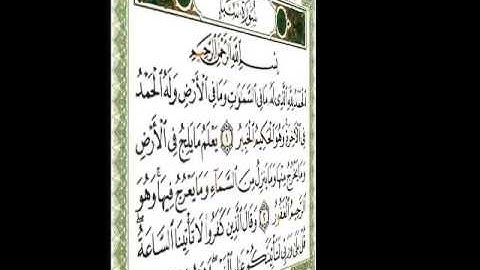 سُورَةُ سَبَإٍ
بِسْمِ اللَّهِ الرَّحْمَٰنِ الرَّحِيمِ
الْحَمْدُ لِلَّهِ الَّذِي لَهُ مَا فِي السَّمَٰوَٰتِ وَمَا فِي الْأَرْضِ وَلَهُ الْحَمْدُ
فِي الْآخِرَةِ وَهُوَ الْحَكِيمُ الْخَبِيرُ ١ يَعْلَمُ مَا يَلِجُ فِي الْأَرْضِ
وَمَا يَخْرُجُ مِنْهَا وَمَا يَنزِلُ مِنَ السَّمَاءِ وَمَا يَعْرُجُ فِيهَا وَهُوَ
الرَّحِيمُ الْغَفُورُ ٢ وَقَالَ الَّذِينَ كَفَرُوا لَا تَأْتِينَا السَّاعَةُ
قُلْ بَلَىٰ وَرَبِّي لَتَأْتِيَنَّكُمْ عَٰلِمِ الْغَيْبِ